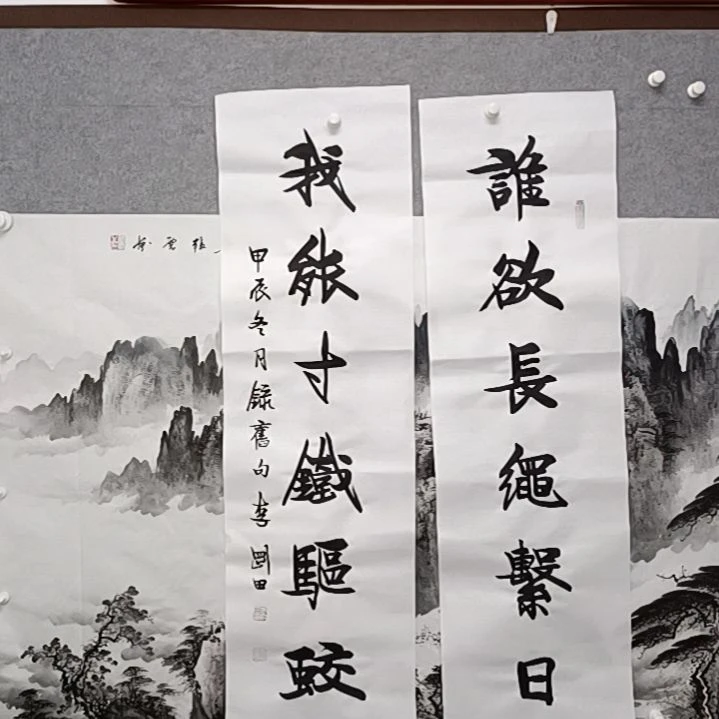 誰欲長繩繫日
我能寸鐵驅蛟
甲辰冬月録舊句李剛田